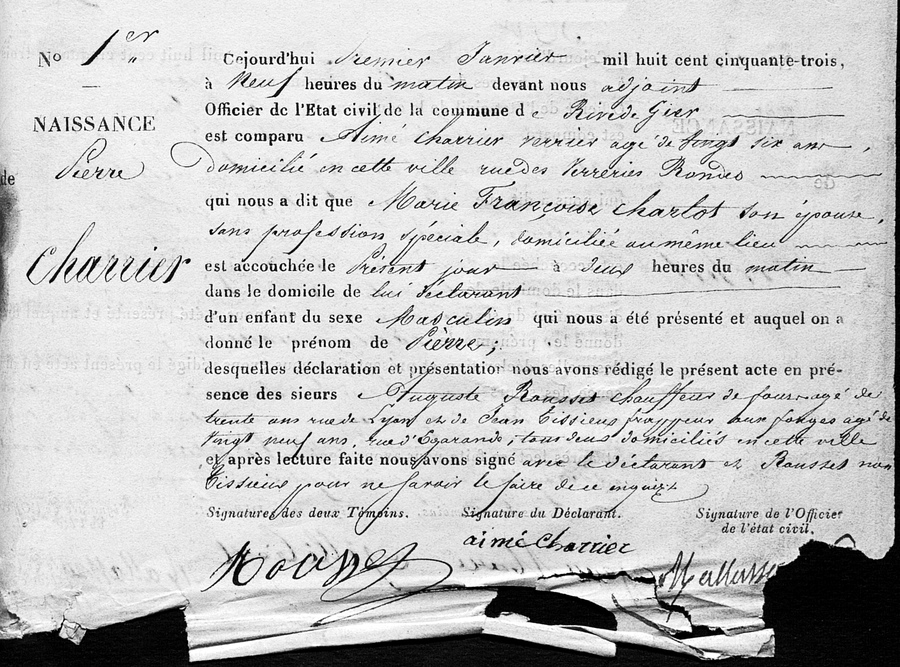 No 1er
NAISSANCE
de Pierre
Charrier
Cejourd'hui Premier Janvier mil huit cent cinquante-trois,
à Neuf heures du matin devant nous adjoint
Officier de l'Etat civil de la commune de Rive de Gier
est comparu Aimé Charrier verrier agé de vingt six ans,
domicilié en cette ville rue des Verreries Rondes
qui nous a dit que Marie Françoise Charlot son épouse,
sans profession spéciale, domiciliée au même lieu
est accouchée le Présent jour à deux heures du matin
dans le domicile de lui déclarant
d'un enfant du sexe Masculin qui nous a été présenté et auquel on a
donné le prénom de Pierre,
desquelles déclaration et présentation nous avons rédigé le présent acte en pré-
sence des sieurs Auguste Rousset chauffeur de four agé de
trente ans rue de Lyon et de Jean Tissieux frappeur aux forges agé de
vingt neuf ans, rue d'Egarande, tous deux domiciliés en cette ville
et après lecture faite nous avons signé avec le déclarant et Rousset non
Tissieux pour ne savoir le faire de ce enquis
Signatures des deux Témoins. Signature du Déclarant. Signature de l'Officier
de l'état civil.
aimé Charrier
Rousset